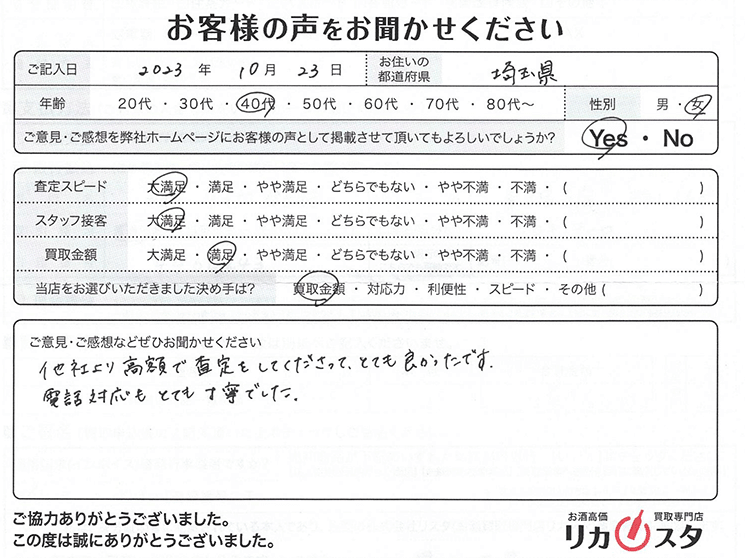 お客様の声をお聞かせください
ご記入日 2023 年 10 月 23 日 お住いの都道府県 埼玉県
年齢 20代 ・ 30代 ・ 40代 ・ 50代 ・ 60代 ・ 70代 ・ 80代～ 性別 男 ・ 女
ご意見・ご感想を弊社ホームページにお客様の声として掲載させて頂いてもよろしいでしょうか? Yes ・ No
査定スピード 大満足 ・ 満足 ・ やや満足 ・ どちらでもない ・ やや不満 ・ 不満 ・ ( )
スタッフ接客 大満足 ・ 満足 ・ やや満足 ・ どちらでもない ・ やや不満 ・ 不満 ・ ( )
買取金額 大満足 ・ 満足 ・ やや満足 ・ どちらでもない ・ やや不満 ・ 不満 ・ ( )
当店をお選びいただきました決め手は? 買取金額 ・ 対応力 ・ 利便性 ・ スピード ・ その他 ( )
ご意見・ご感想などぜひお聞かせください
他社より高額で査定をしてくださって、とても良かったです.
電話対応もとても丁寧でした。
ご協力ありがとうございました。
この度は誠にありがとうございました。
お酒高価 買取専門店
リカスタ